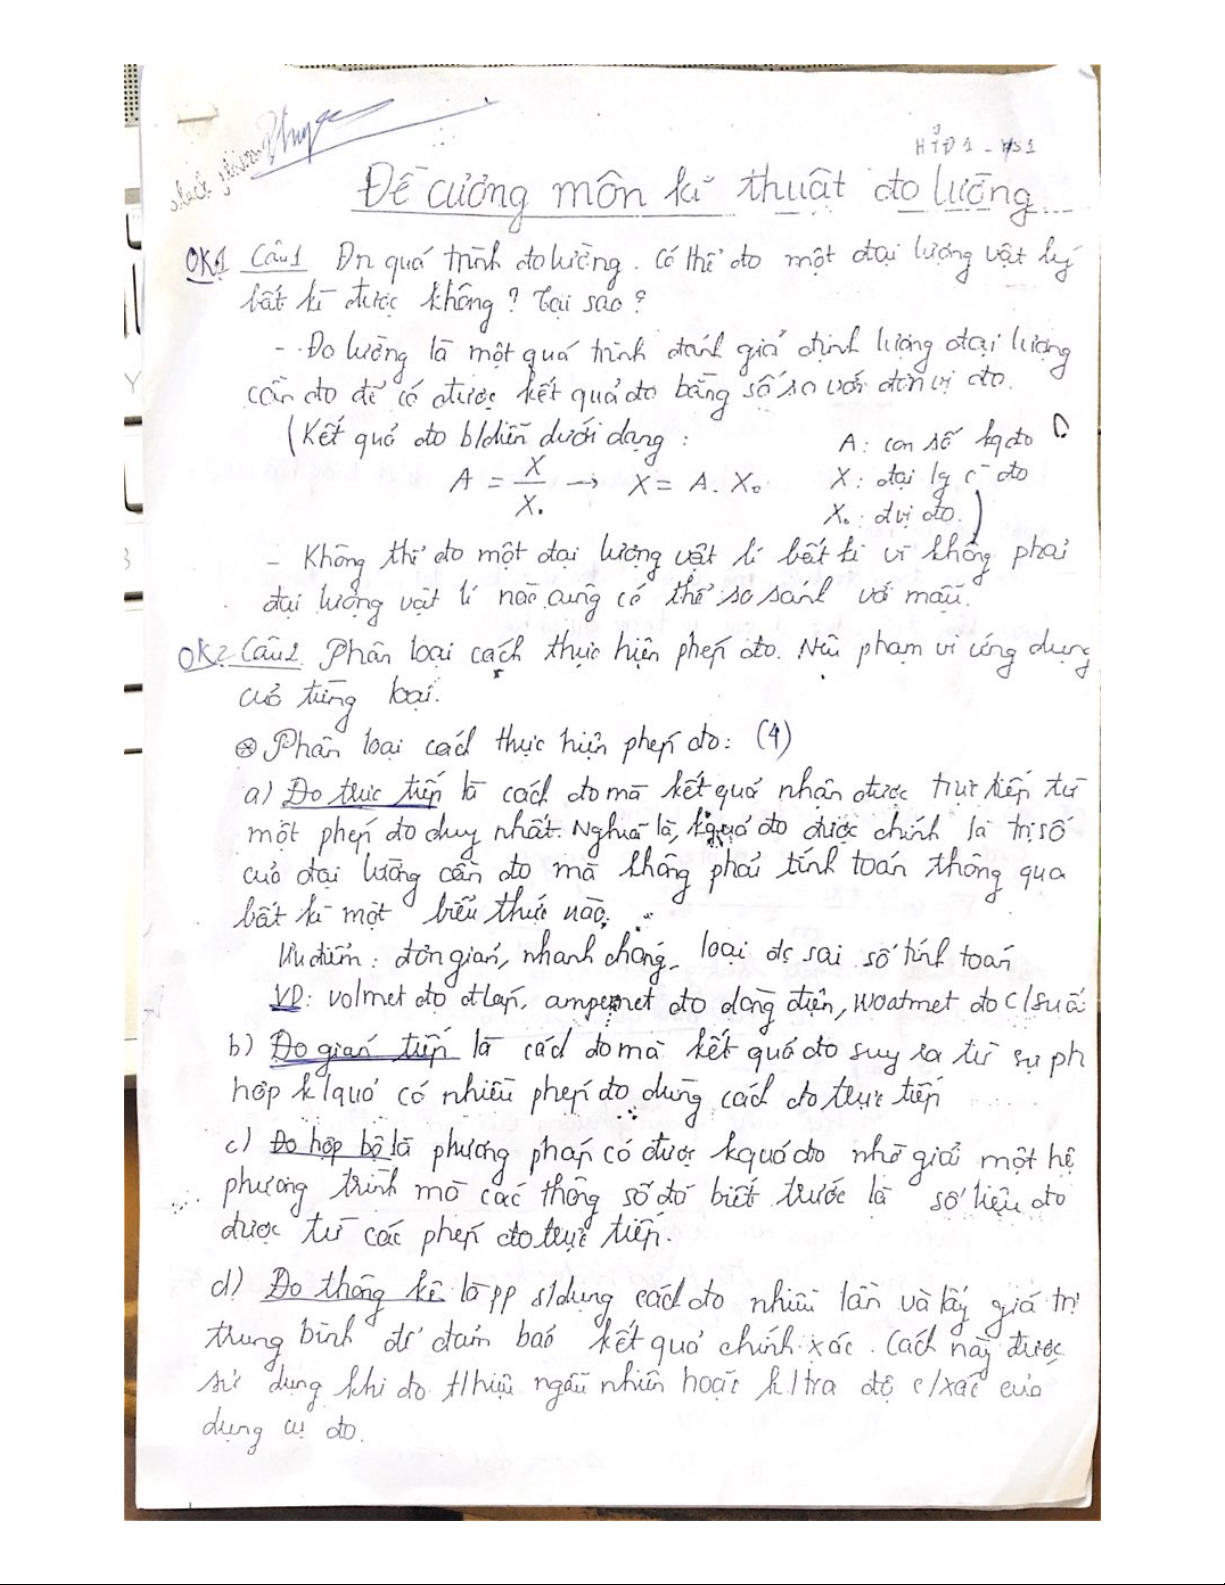 HTĐ1 - K51
Đề cương môn kĩ thuật đo lường
OK1 Câu1 Đn quá trình đo lường. Có thể đo một đại lượng vật lý
bất kì được không? Tại sao?
- Đo lường là một quá trình đánh giá định lượng đại lượng
cần đo để có được kết quả đo bằng số so với đơn vị đo.
(Kết quả đo b/diễn dưới dạng :
A : con số kq đo
A = X/X₀ → X = A. X₀
X : đại lg c̄ đo
X₀ : đvị đo.)
- Không thể đo một đại lượng vật lí bất kì vì không phải
đại lượng vật lí nào cũng có thể so sánh với mẫu.
OK2 Câu2 Phân loại cách thực hiện phép đo. Nêu phạm vi ứng dụng
của từng loại.
⊛ Phân loại cách thực hiện phép đo: (4)
a) Đo trực tiếp là cách đo mà kết quả nhận được trực tiếp từ
một phép đo duy nhất. Nghĩa là, kquả đo được chính là trị số
của đại lượng cần đo mà không phải tính toán thông qua
bất kì một biểu thức nào.
Ưu điểm : đơn giản, nhanh chóng, loại đc sai số tính toán
VD: volmet đo đ/áp, ampemet đo dòng điện, woatmet đo c/suấ
b) Đo gián tiếp là cách đo mà kết quả đo suy ra từ sự ph
hợp k/quả có nhiều phép đo dùng cách đo trực tiếp
c) Đo hợp bộ là phương pháp có được kquả đo nhờ giải một hệ
phương trình mà các thông số đã biết trước là số liệu đo
được từ các phép đo trực tiếp.
d) Đo thống kê là pp s/dụng cách đo nhiều lần và lấy giá trị
trung bình để đảm bảo kết quả chính xác. Cách này được
sử dụng khi đo t/hiệu ngẫu nhiên hoặc k/tra độ c/xác của
dụng cụ đo.